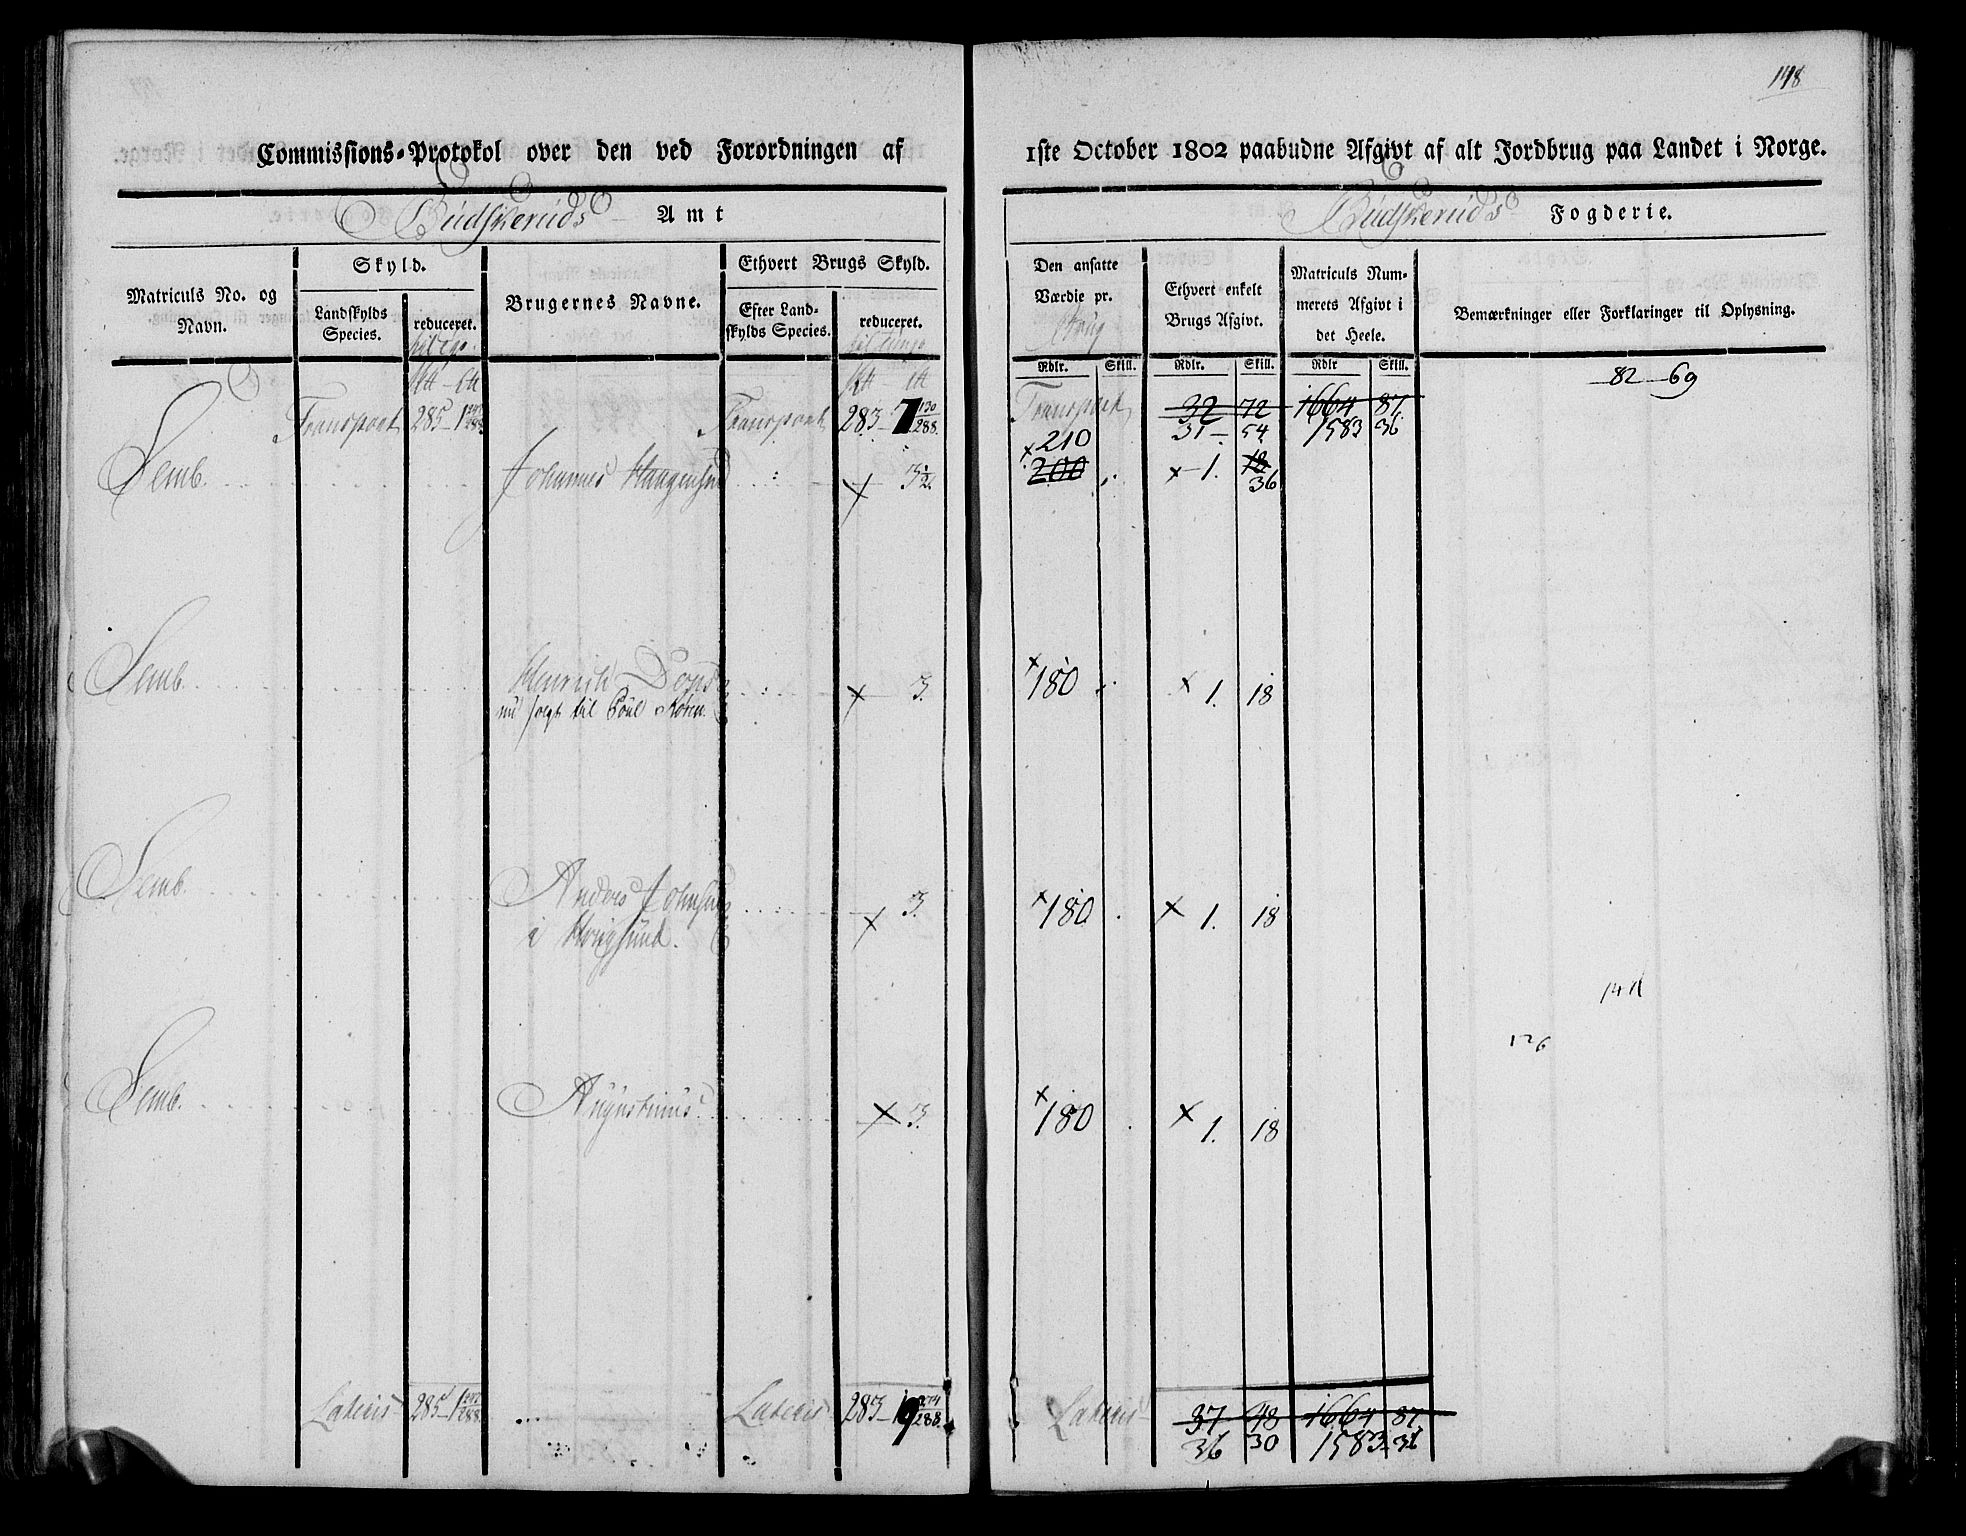 148
Commissions-Protokol over den ved Forordningen af 1ste October 1802 paabudne Afgivt af alt Jordbrug paa Landet i Norge.
Budskeruds Amt
Budskeruds Fogderie.
Matriculs No. og Navn.
Skyld.
Landskylds Species.
reduceret.
Brugernes Navne.
Ethvert Brugs Skyld.
Efter Landskylds Species.
reduceret.
Den ansatte Værdie pr.
Brug
Ethvert enkelt Brugs Afgivt.
Matriculs Nummerets Afgivt i det Heele.
Bemærkninger eller Forklaringer til Oplysning.
Rdlr. Skill. Rdlr. Skill. Rdlr Skill.
82 69
Transport 285 - 1 Transport 283 - 7 130/288 Transport 32 72 1664 87
31 - 54 1583 36
Semb. Johannes Haagensen x 3 1/2. x 210 x 1. 18
200 36
Semb. Henrich x 3. x 180 x 1. 18
nu solgt til Poul
Semb. Anders Johnsen x 3. x 180 x 1. 18
i Hougsund.
126
Semb. Augustinus x 3. x 180 x 1. 18
Lateris 285 - 1 Lateris 283 - 19 274/288 Lateris 37 48 1664 87
36 30 1583 - 36